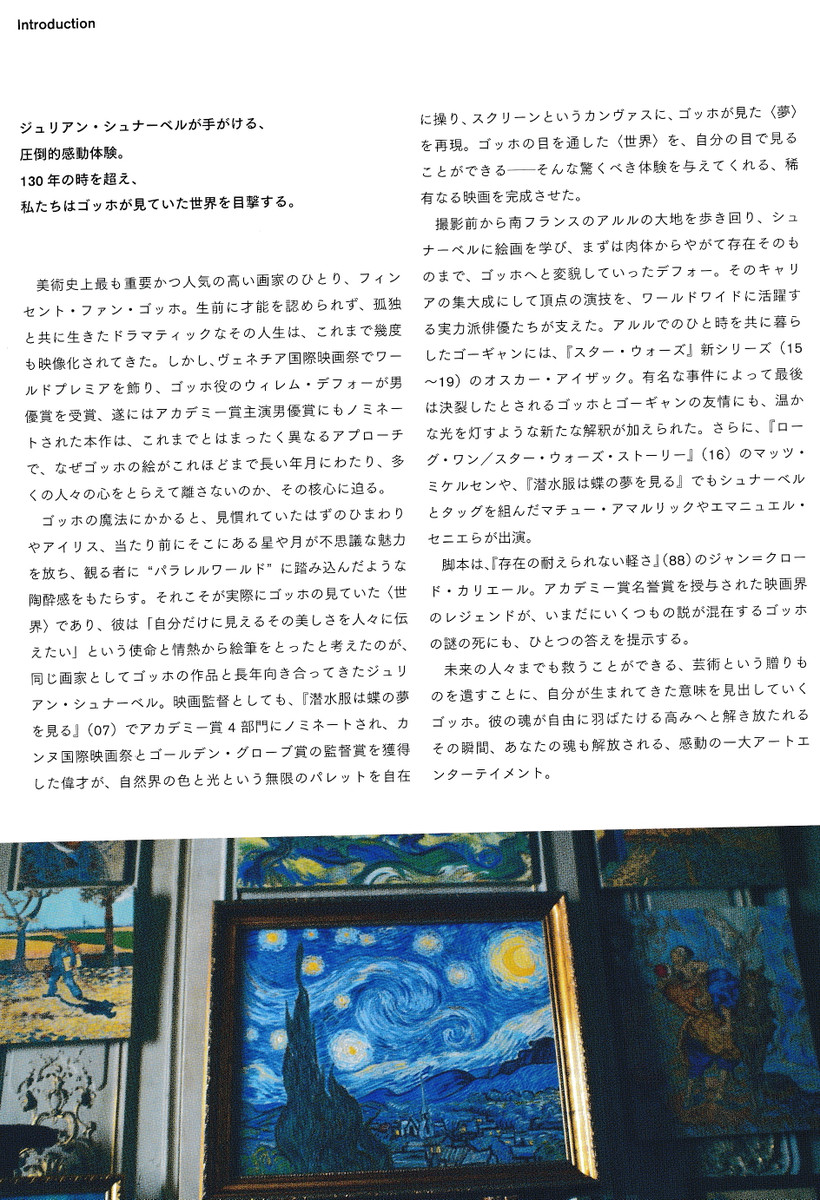 Introduction
ジュリアン・シュナーベルが手がける、
圧倒的感動体験。
130 年の時を超え、
私たちはゴッホが見ていた世界を目撃する。
美術史上最も重要かつ人気の高い画家のひとり、フィン
セント・ファン・ゴッホ。生前に才能を認められず、孤独
と共に生きたドラマティックなその人生は、これまで幾度
も映像化されてきた。しかし、ヴェネチア国際映画祭でワー
ルドプレミアを飾り、ゴッホ役のウィレム・デフォーが男
優賞を受賞、遂にはアカデミー賞主演男優賞にもノミネー
トされた本作は、これまでとはまったく異なるアプローチ
で、なぜゴッホの絵がこれほどまで長い年月にわたり、多
くの人々の心をとらえて離さないのか、その核心に迫る。
ゴッホの魔法にかかると、見慣れていたはずのひまわり
やアイリス、当たり前にそこにある星や月が不思議な魅力
を放ち、観る者に “パラレルワールド” に踏み込んだような
陶酔感をもたらす。それこそが実際にゴッホの見ていた〈世
界〉であり、彼は「自分だけに見えるその美しさを人々に伝
えたい」という使命と情熱から絵筆をとったと考えたのが、
同じ画家としてゴッホの作品と長年向き合ってきたジュリ
アン・シュナーベル。映画監督としても、『潜水服は蝶の夢
を見る』（07）でアカデミー賞 4 部門にノミネートされ、カ
ンヌ国際映画祭とゴールデン・グローブ賞の監督賞を獲得
した偉才が、自然界の色と光という無限のパレットを自在
に操り、スクリーンというカンヴァスに、ゴッホが見た〈夢〉
を再現。ゴッホの目を通した〈世界〉を、自分の目で見る
ことができる——そんな驚くべき体験を与えてくれる、稀
有なる映画を完成させた。
撮影前から南フランスのアルルの大地を歩き回り、シュ
ナーベルに絵画を学び、まずは肉体からやがて存在そのも
のまで、ゴッホへと変貌していったデフォー。そのキャリ
アの集大成にして頂点の演技を、ワールドワイドに活躍す
る実力派俳優たちが支えた。アルルでのひと時を共に暮ら
したゴーギャンには、『スター・ウォーズ』新シリーズ（15
～19）のオスカー・アイザック。有名な事件によって最後
は決裂したとされるゴッホとゴーギャンの友情にも、温か
な光を灯すような新たな解釈が加えられた。さらに、『ロー
グ・ワン／スター・ウォーズ・ストーリー』（16）のマッツ・
ミケルセンや、『潜水服は蝶の夢を見る』でもシュナーベル
とタッグを組んだマチュー・アマルリックやエマニュエル・
セニエらが出演。
脚本は、『存在の耐えられない軽さ』（88）のジャン＝クロー
ド・カリエール。アカデミー賞名誉賞を授与された映画界
のレジェンドが、いまだにいくつもの説が混在するゴッホ
の謎の死にも、ひとつの答えを提示する。
未来の人々までも救うことができる、芸術という贈りも
のを遺すことに、自分が生まれてきた意味を見出していく
ゴッホ。彼の魂が自由に羽ばたける高みへと解き放たれる
その瞬間、あなたの魂も解放される、感動の一大アートエ
ンターテイメント。